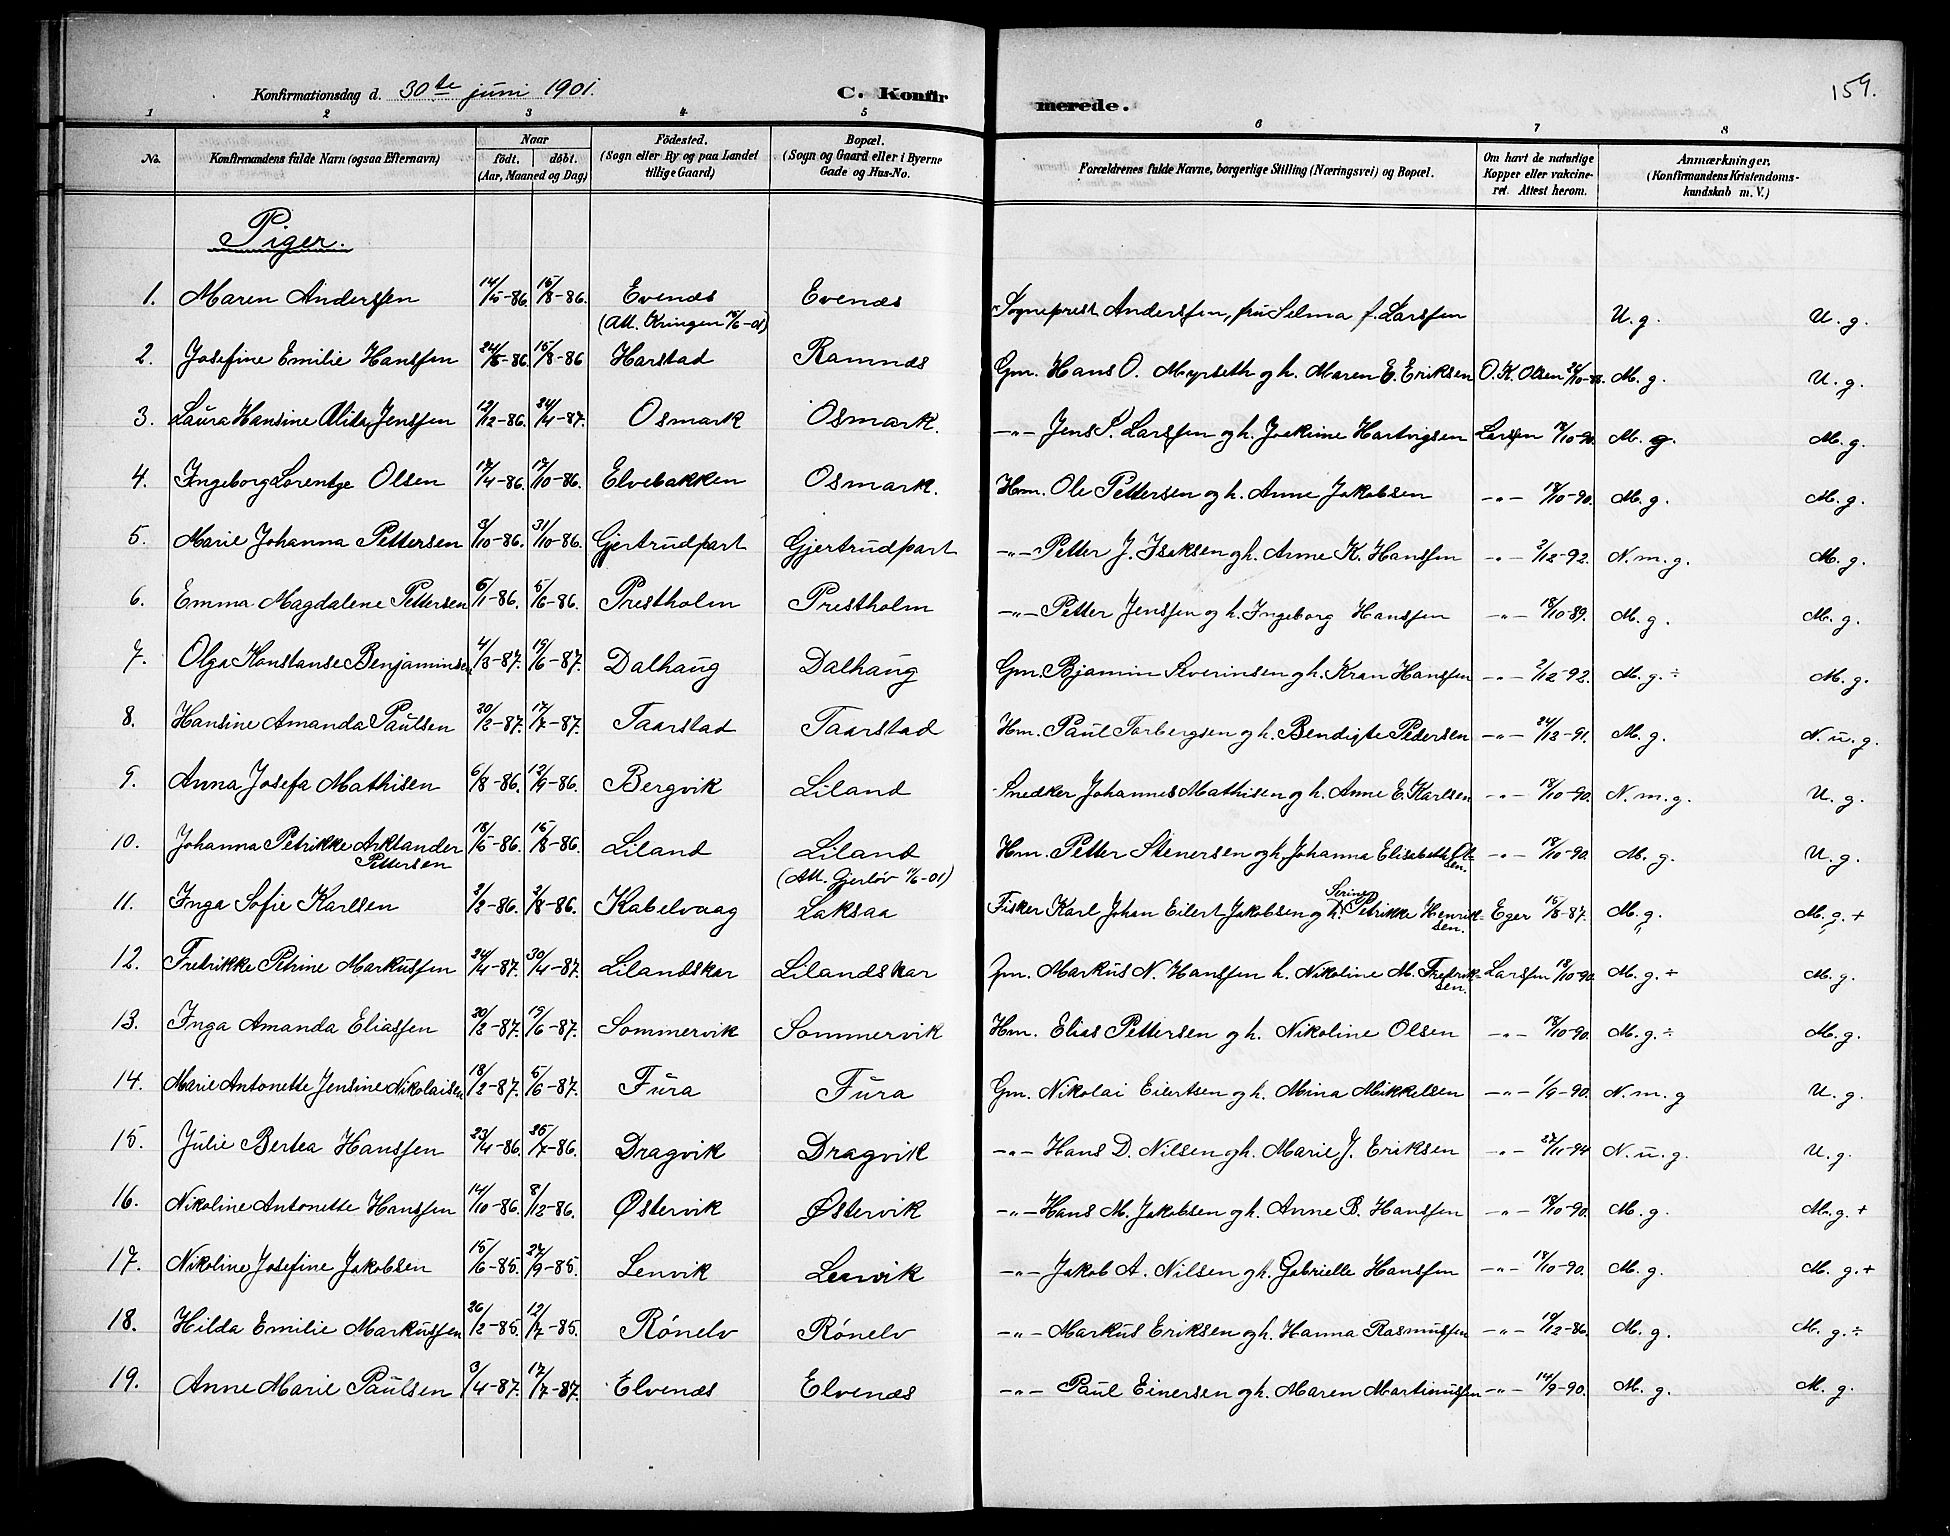 159.
Konfirmationsdag d. 30te juni 1901.
C. Konfirmerede.
1 2 3 4 5 6 7 8
No. Konfirmandens fulde Navn (ogsaa Efternavn) Naar födt. döbt. (Aar, Maaned og Dag) Födested. (Sogn eller By og paa Landet tillige Gaard) Bopæl. (Sogn og Gaard eller i Byerne Gade og Hus-No. Forældrenes fulde Navne, borgerlige Stilling (Næringsvei) og Bopæl. Om havt de naturlige Kopper eller vakcineret. Attest herom. Anmærkninger. (Konfirmandens Kristendomskundskab m. V.)
Piger.
1. Maren Anderssen 14/5-86. 15/8-86. Evenæs Evenæs Sogneprest Anderssen, fru Selma f. Larssen U. g. U. g.
(Att. Kringen 15/6-01)
2. Josefine Emilie Hanssen 24/5-86. 15/8-86 Harstad Ramnæs Gm. Hans O. Myrseth og h. Maren E. Eriksen O. K. Olsen M. g. U. g.
3. Laura Hansine Alida Jenssen 12/12-86. 24/4-87. Osmark Osmark. -"- Jens P. Larssen og h. Joakime Hartvigsen Larssen 18/10-90. M. g. M. g.
4. Ingeborg Lorentze Olsen 17/4-86. 17/10-86. Elvebakken Osmark. Hm. Ole Pettersen og h. Anne Jakobsen -"- 18/10-90. M. g. M. g.
5. Marie Johanna Pettersen 3/10-86. 31/10-86. Gjertrudpart Gjertrudpart -"- Petter J. Isaksen og h. Anne K. Hanssen -"- 2/12-92. N. m. g. M. g.
6. Emma Magdalene Pettersen 6/1-86. 5/6-86. Prestholm Prestholm -"- Petter Jenssen og h. Ingeborg Hanssen -"- 18/10-89. M. g. M. g.
7. Olga Konstanse Benjaminsen 4/3-87. 19/6-87. Dalhaug Dalhaug Gm. Bjamin Severinsen og h. Kran Hanssen -"- 2/12-92. M. g. ÷ M. g.
8. Hansine Amanda Paulsen 20/2-87. 17/7-87. Taarstad Taarstad Hm. Paul Torbergsen og h. Bendigte Pedersen -"- 24/12-91. M. g. N. u. g.
9. Anna Josefa Mathisen 6/8-86. 12/9-86. Bergvik Liland Snedker Johannes Mathisen og h. Anne E. Karlsen -"- 18/10-90. N. m. g. U. g.
10. Johanna Petrikke Arktander Pettersen 18/5-86. 15/8-86. Liland Liland Hm. Petter Stenersen og h. Johanna Elisabeth Olsen. -"- 18/10-90. M. g. U. g.
(Att. Gjerløv 11/6-01)
11. Inga Sofie Karlsen 2/2-86. 2/8-86. Kabelvaag Laksaa Fisker Karl Johan Eilert Jakobsen og h. Serine Petrikke Henriksen. Eger 15/8-87. M. g. M. g. +
12. Fredrikke Petrine Markussen 24/4-87. 30/4-87. Lilandskar Lilandskar Markus N. Hanssen h. Nikoline M. Fredriksen. Larssen 18/10-90. M. g. + M. g.
13. Inga Amanda Eliassen 20/2-87. 19/6-87. Sommervik Sommervik Hm. Elias Pettersen og h. Nikoline Olsen -"- 18/10-90. M. g. ÷ M. g.
14. Marie Antonette Jensine Nikolaisen 18/2-87. 5/6-87. Fura Fura Gm. Nikolai Eilertsen og h. Mina Mikkelsen -"- 1/9-90. N. m. g U. g.
15. Julie Bertea Hanssen 23/4-86. 25/7-86. Dragvik Dragvik -"- Hans D. Nilsen og h. Marie J. Eriksen -"- 27/11-94 N. u. g. U. g.
16. Nikoline Antonette Hanssen 14/10-86. 8/12-86. Østervik Østervik -"- Hans M. Jakobsen og h. Anne B. Hanssen -"- 18/10-90. M. g. M. g. +
17. Nikoline Josefine Jakobsen 15/6-85. 27/9-85. Lenvik Lenvik -"- Jakob A. Nilsen og h. Gabrielle Hanssen -"- 18/10-90. M. g. M. g. +
18. Hilda Emilie Markussen 26/2-85. 12/7-85. Rónelv Rónelv -"- Markus Eriksen og h. Hanna Rasmussen -"- 19/12-86. M. g. M. g. ÷
19. Anne Marie Paulsen 3/4-87. 17/7-87. Elvenæs Elvenæs -"- Paul Einersen og h. Maren Martinussen -"- 14/9-90. M. g. M. g.